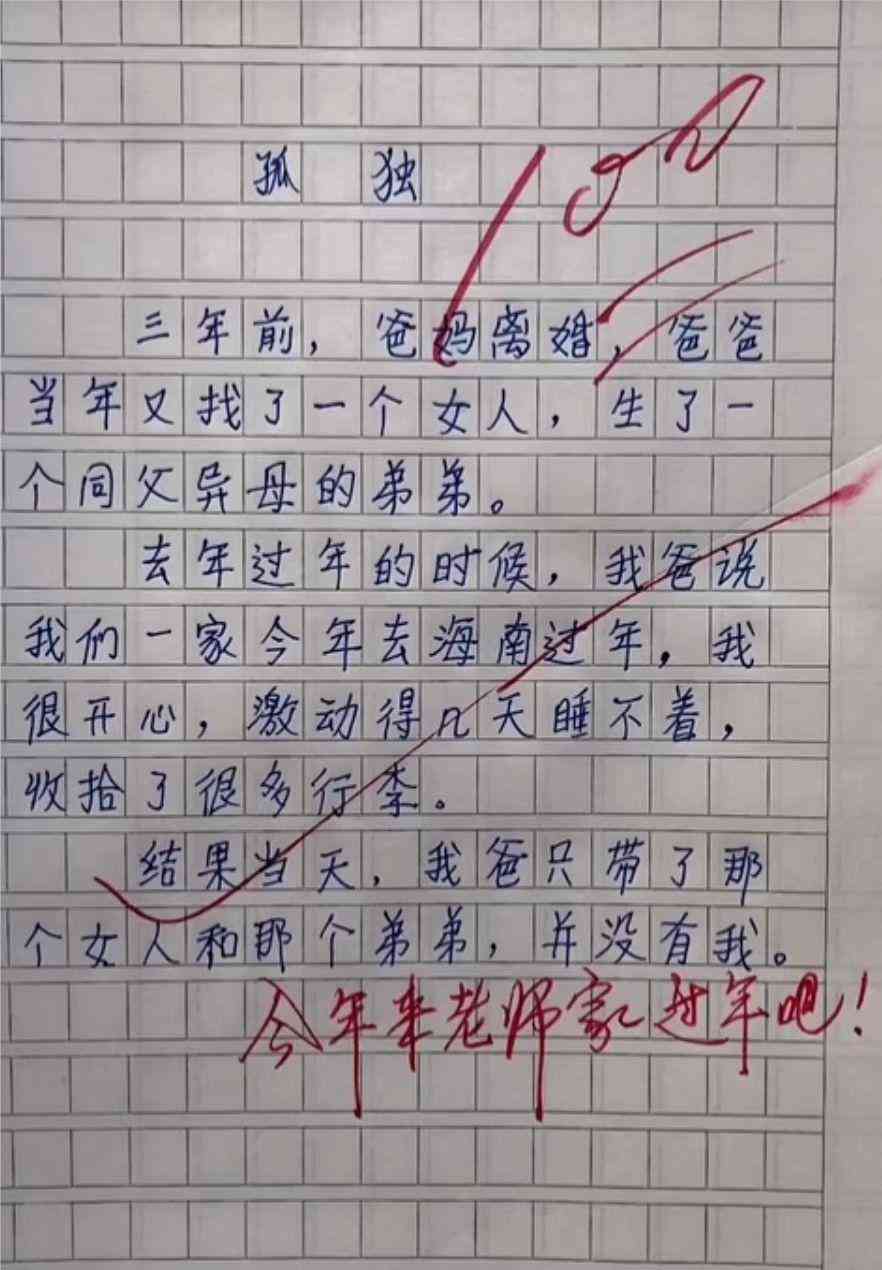 100
孤独
三年前，爸妈离婚，爸爸
当年又找了一个女人，生了一
个同父异母的弟弟。
去年过年的时候，我爸说
我们一家今年去海南过年，我
很开心，激动得几天睡不着，
收拾了很多行李。
结果当天，我爸只带了那
个女人和那个弟弟，并没有我。
今年来老师家过年吧！